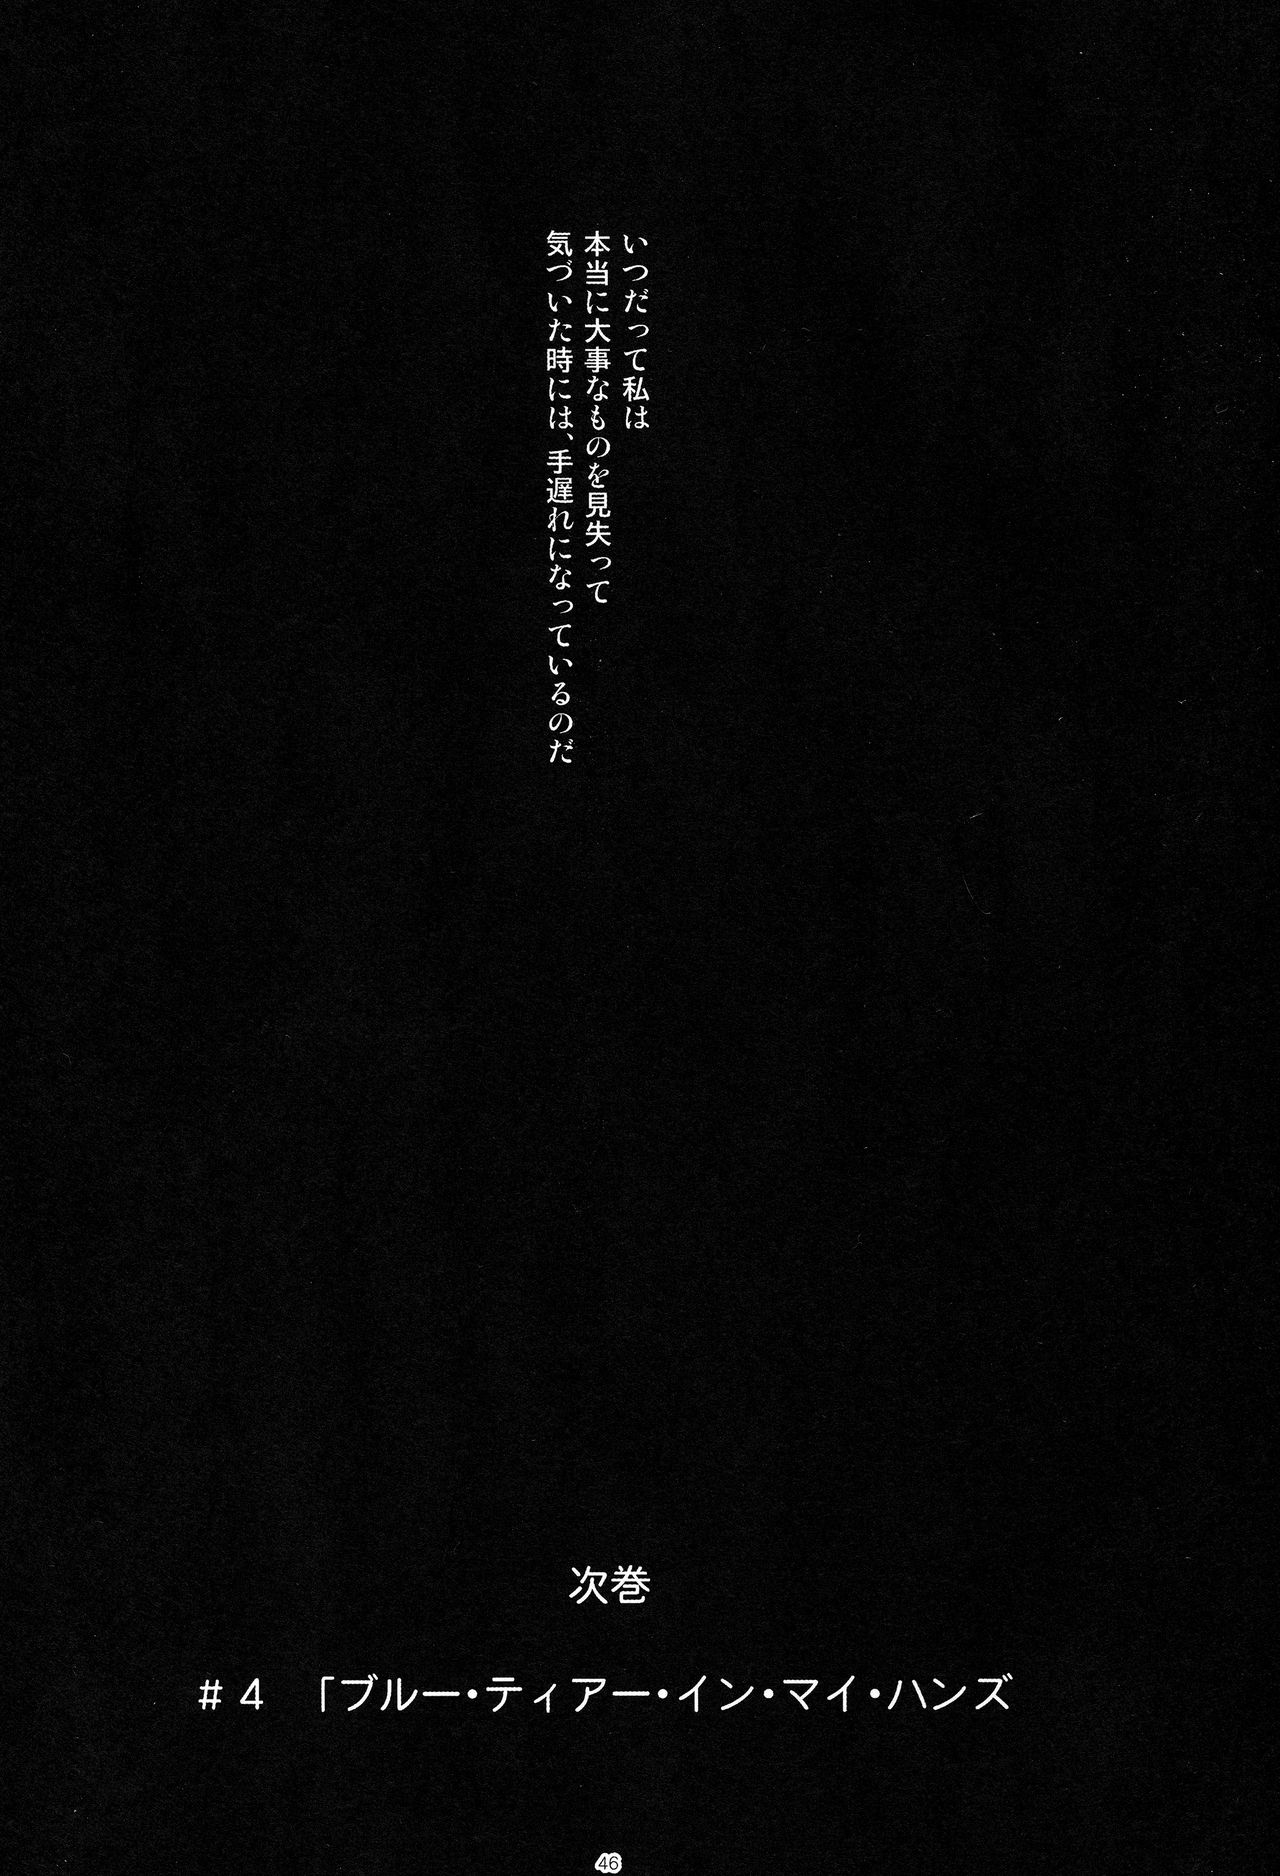 いつだって私は
本当に大事なものを見失って
気づいた時には、手遅れになっているのだ
次巻
＃４　「ブルー・ティアー・イン・マイ・ハンズ
46